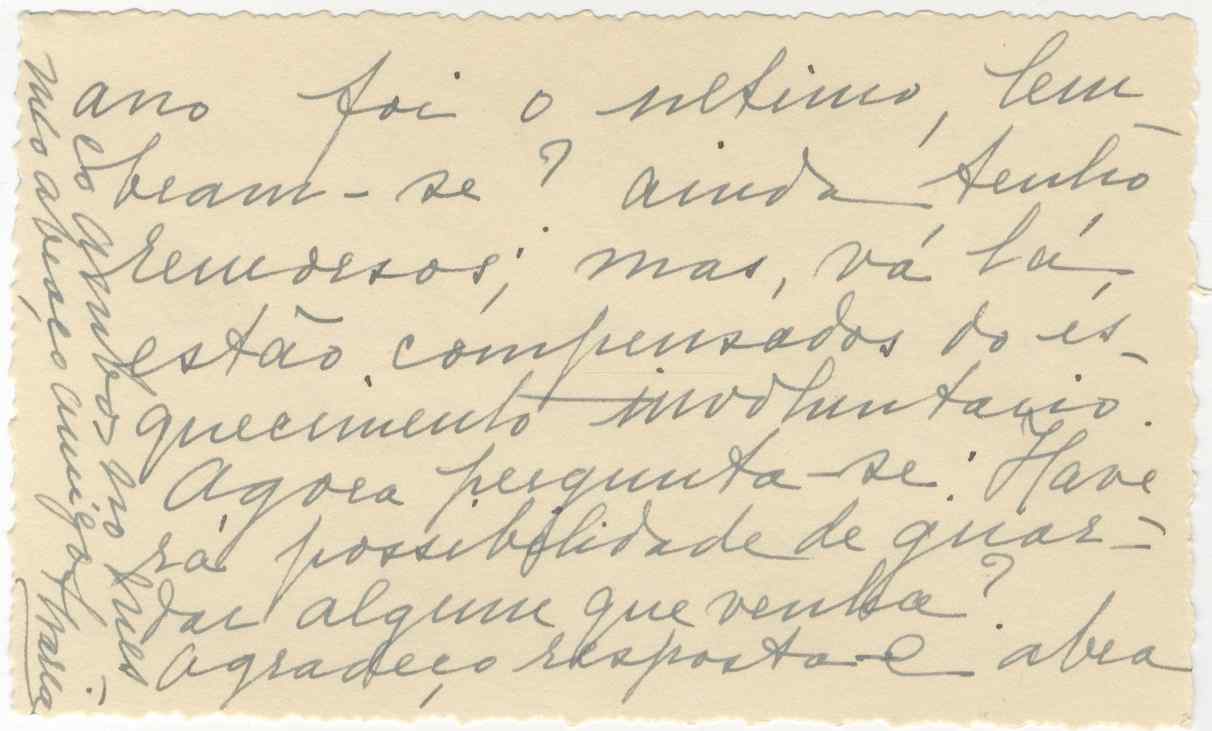 ano foi o ultimo, lem-
bram-se? ainda tenho
remorsos; mas, vá lá,
estão compensados do es-
quecimento involuntario.
Agora pergunta-se: Have
rá possibilidade de guar-
dar algum que venha?
Agradeço resposta e abra
ço ambos no
mmo abraço amigo Maria